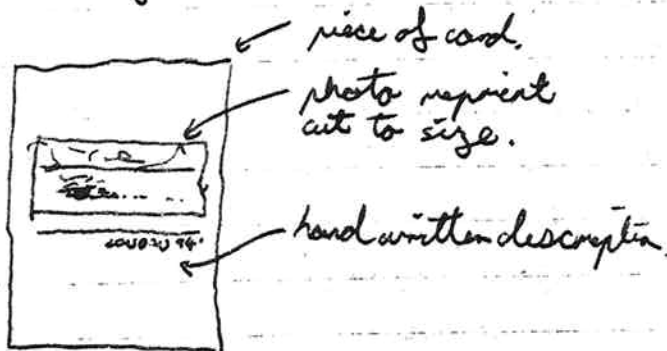 piece of card.
photo reprint
cut to size.
hand written description.